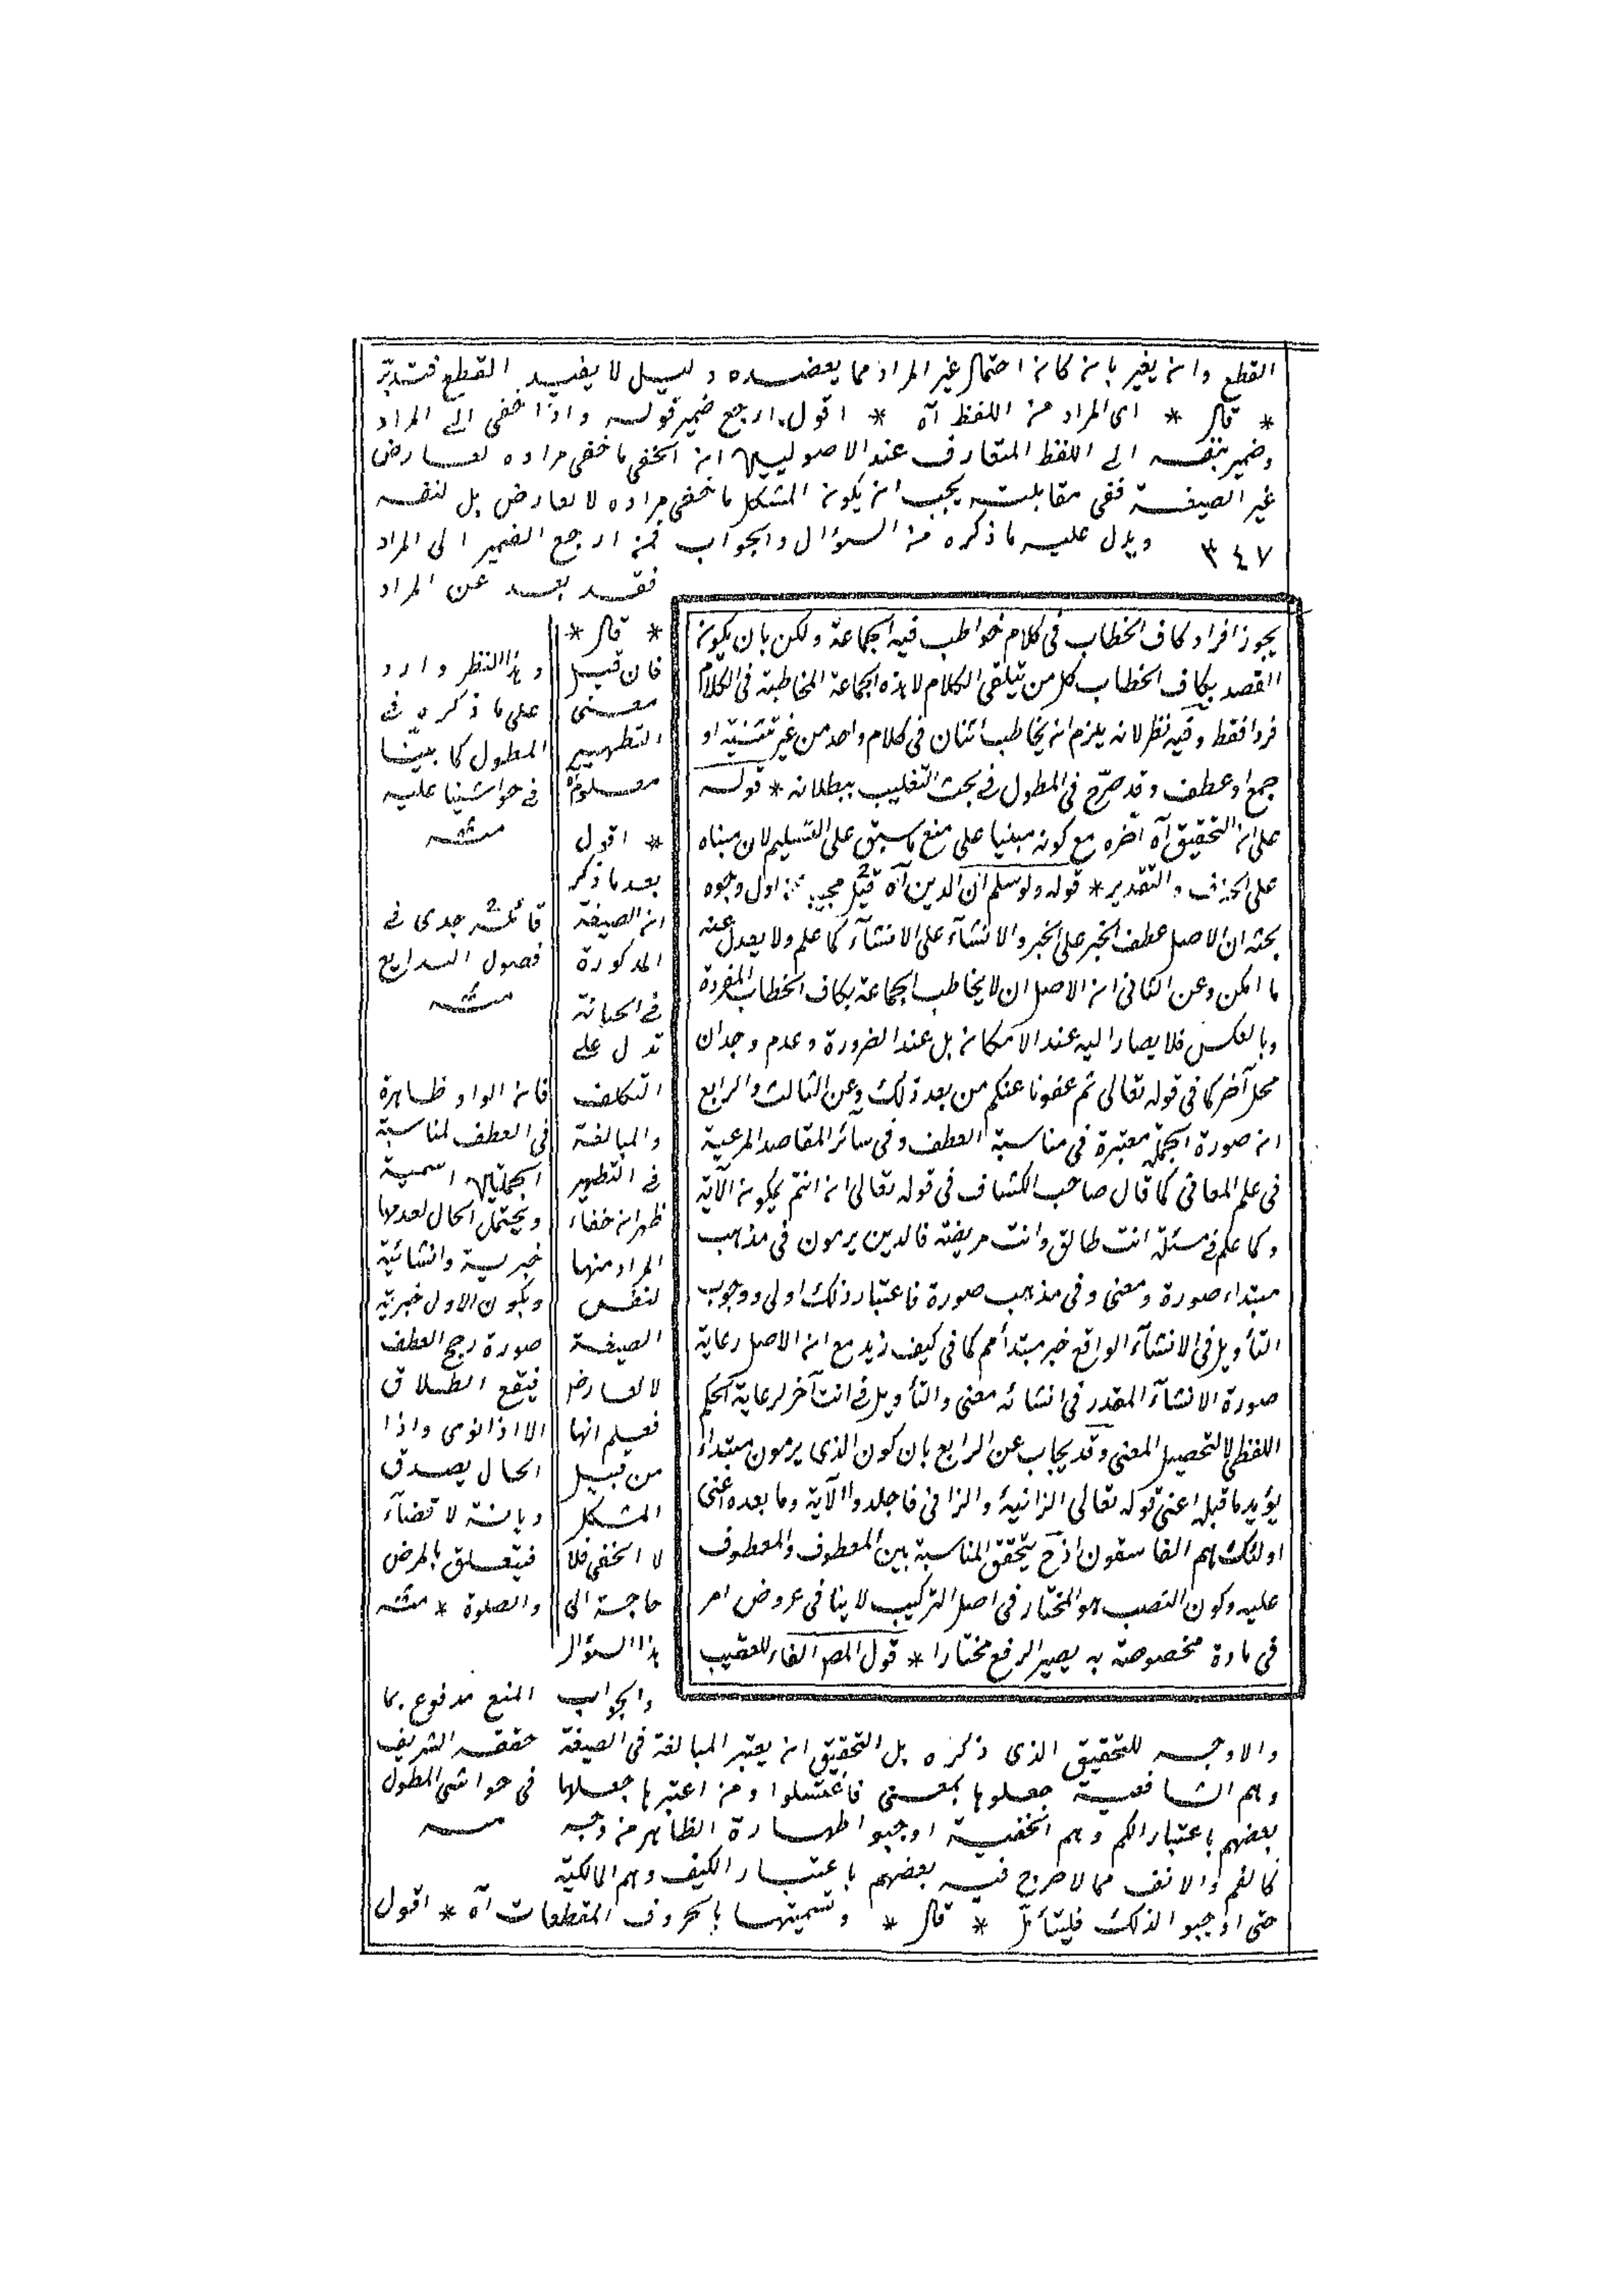 القطع وان يغير بان كان احتمال غير المراد مما يعضده دليل لا يفيد القطع فتدبر
* قال * اى المراد من اللفظ آه * اقول ارجع ضمير قوله واذا خفى الى المراد
وضمير بنفسه الى اللفظ المتعارف عند الاصوليين ان الخفى ما خفى مراده لعارض
غير الصيغة ففى مقابلته يجب ان يكون المشكل ما خفى مراده لا لعارض بل لنفسه
٣٤٧ ويدل عليه ما ذكره من السؤال والجواب فمن ارجع الضمير الى المراد
فقد بعد عن المراد
يجوز افراد كاف الخطاب فى كلام خوطب فيه الجماعة ولكن بان يكون
القصد بكاف الخطاب كل من يتلقى الكلام لا هذه الجماعة المخاطبة فى الكلام
فردا فقط وفيه نظر لانه يلزم ان يخاطب اثنان فى كلام واحد من غير تثنية او
جمع او عطف وقد صرّح فى المطول فى بحث التغليب ببطلانه * قوله
على ان التحقيق آه اخره مع كونه مبنيا على منع ما سبق على التسليم لان مبناه
على الحذف والتقدير * قوله ولو سلم ان الذين آه قيل مجيب عن اول وجوه
بحثه ان الاصل عطف الخبر على الخبر والانشآء على الانشآء كما علم ولا يعدل عنه
ما امكن وعن الثانى ان الاصل ان لا يخاطب الجماعة بكاف الخطاب المفردة
وبالعكس فلا يصار اليه عند الامكان بل عند الضرورة وعدم وجدان
محل آخر كما فى قوله تعالى ثم عفونا عنكم من بعد ذلك وعن الثالث والرابع
ان صورة الجملة معتبرة فى مناسبة العطف وفى سائر المقاصد المرعية
فى علم المعانى كما قال صاحب الكشاف فى قوله تعالى ان انتم تملكون الآية
وكما علم فى مسئلة انت طالق وانت مريضة فالذين يرمون فى مذهب
مبتداء صورة ومعنى وفى مذهب صورة فاعتبار ذلك اولى ووجوب
التأويل فى الانشآء الواقع خبر مبتدأ مم كما فى كيف زيد مع ان الاصل رعاية
صورة الانشآء المقدر فى انشائه معنى والتأويل فى انت آخر لرعاية الحكم
اللفظى لا لتحصيل المعنى وقد يجاب عن الرابع بان كون الذى يرمون مبتداء
يؤيد ما قبله اعنى قوله تعالى الزانية والزانى فاجلدوا الآية وما بعده اعنى
اولئك هم الفاسقون اذ ح يتحقق المناسبة بين المعطوف والمعطوف
عليه وكون النصب هو المختار فى اصل التركيب لا ينافى عروض امر
فى مادة مخصوصة به يصير الرفع مختارا * قول المص الفاء للتعقيب
* قال *
فان قيل
معنى
التطهير
معلوم
* اقول
بعد ما ذكر
ان الصيغة
المذكورة
فى الجنابة
تدل على
التكلف
والمبالغة
فى التطهير
ظهر ان خفاء
المراد منها
لنفس
الصيغة
لا لعارض
فعلم انها
من قبيل
المشكل
لا الخفى فلا
حاجة الى
هذا السؤال
والجواب
وهذا النظر وارد
على ما ذكره فى
المطول كما بينّا
فى حواشينا عليه
منه
قائله جدى فى
فصول البدايع
منه
فان الواو ظاهرة
فى العطف لمناسبة
الجملتين اسمية
ويحتمل الحال لعدمها
خبرية وانشائية
وبكون الاول خبرية
صورة رجح العطف
فيقع الطلاق
الا اذا نوى واذا
الحال يصدق
ديانة لا قضآء
فيتعلق بالمرض
والصلوة * منه
المنع مدفوع بما
حققه الشريف
فى حواشى المطول
منه
والاوجه للتحقيق الذى ذكره بل التحقيق ان يعتبر المبالغة فى الصيغة
وهم الشافعية جعلوها بمعنى فاغتسلوا ومن اعتبرها جعلها
بعضهم باعتبار الكم وهم الحنفية اوجبوا طهارة الظاهر من وجه
كالفم والانف مما لا حرج فيه بعضهم باعتبار الكيف وهم المالكية
حتى اوجبوا الدلك فليتأمل * قال * وتسميتها بالحروف المقطعات آه * اقول